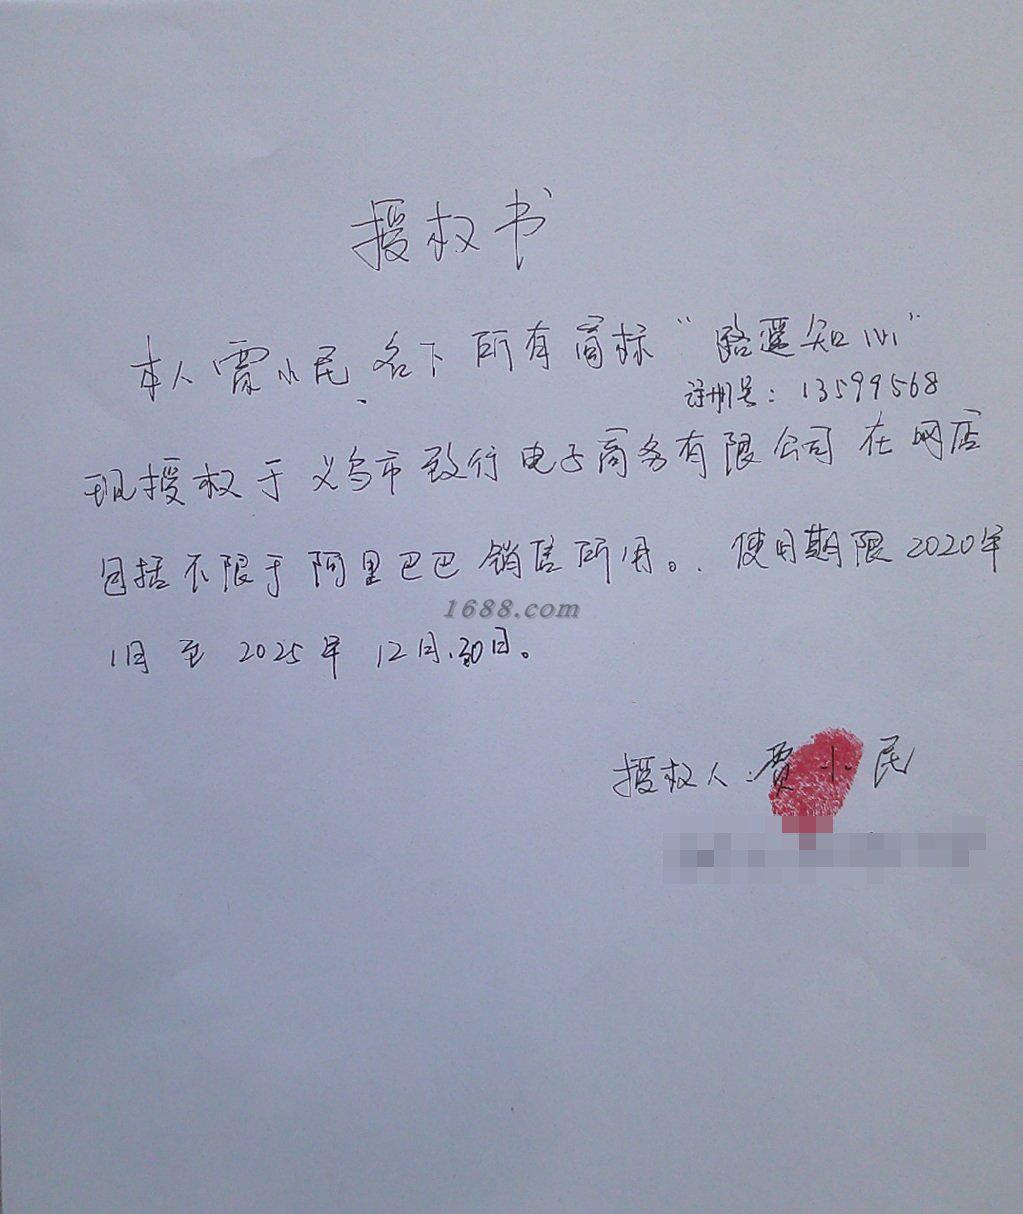 授权书
本人贾小民.名下所有商标“路遥知心”
注册号：13599568
现授权于义乌市致行电子商务有限公司在网店
包括不限于阿里巴巴销售所用。.使用期限2020年
1688.com
1月至2025年12月.30日。
授权人:贾小民